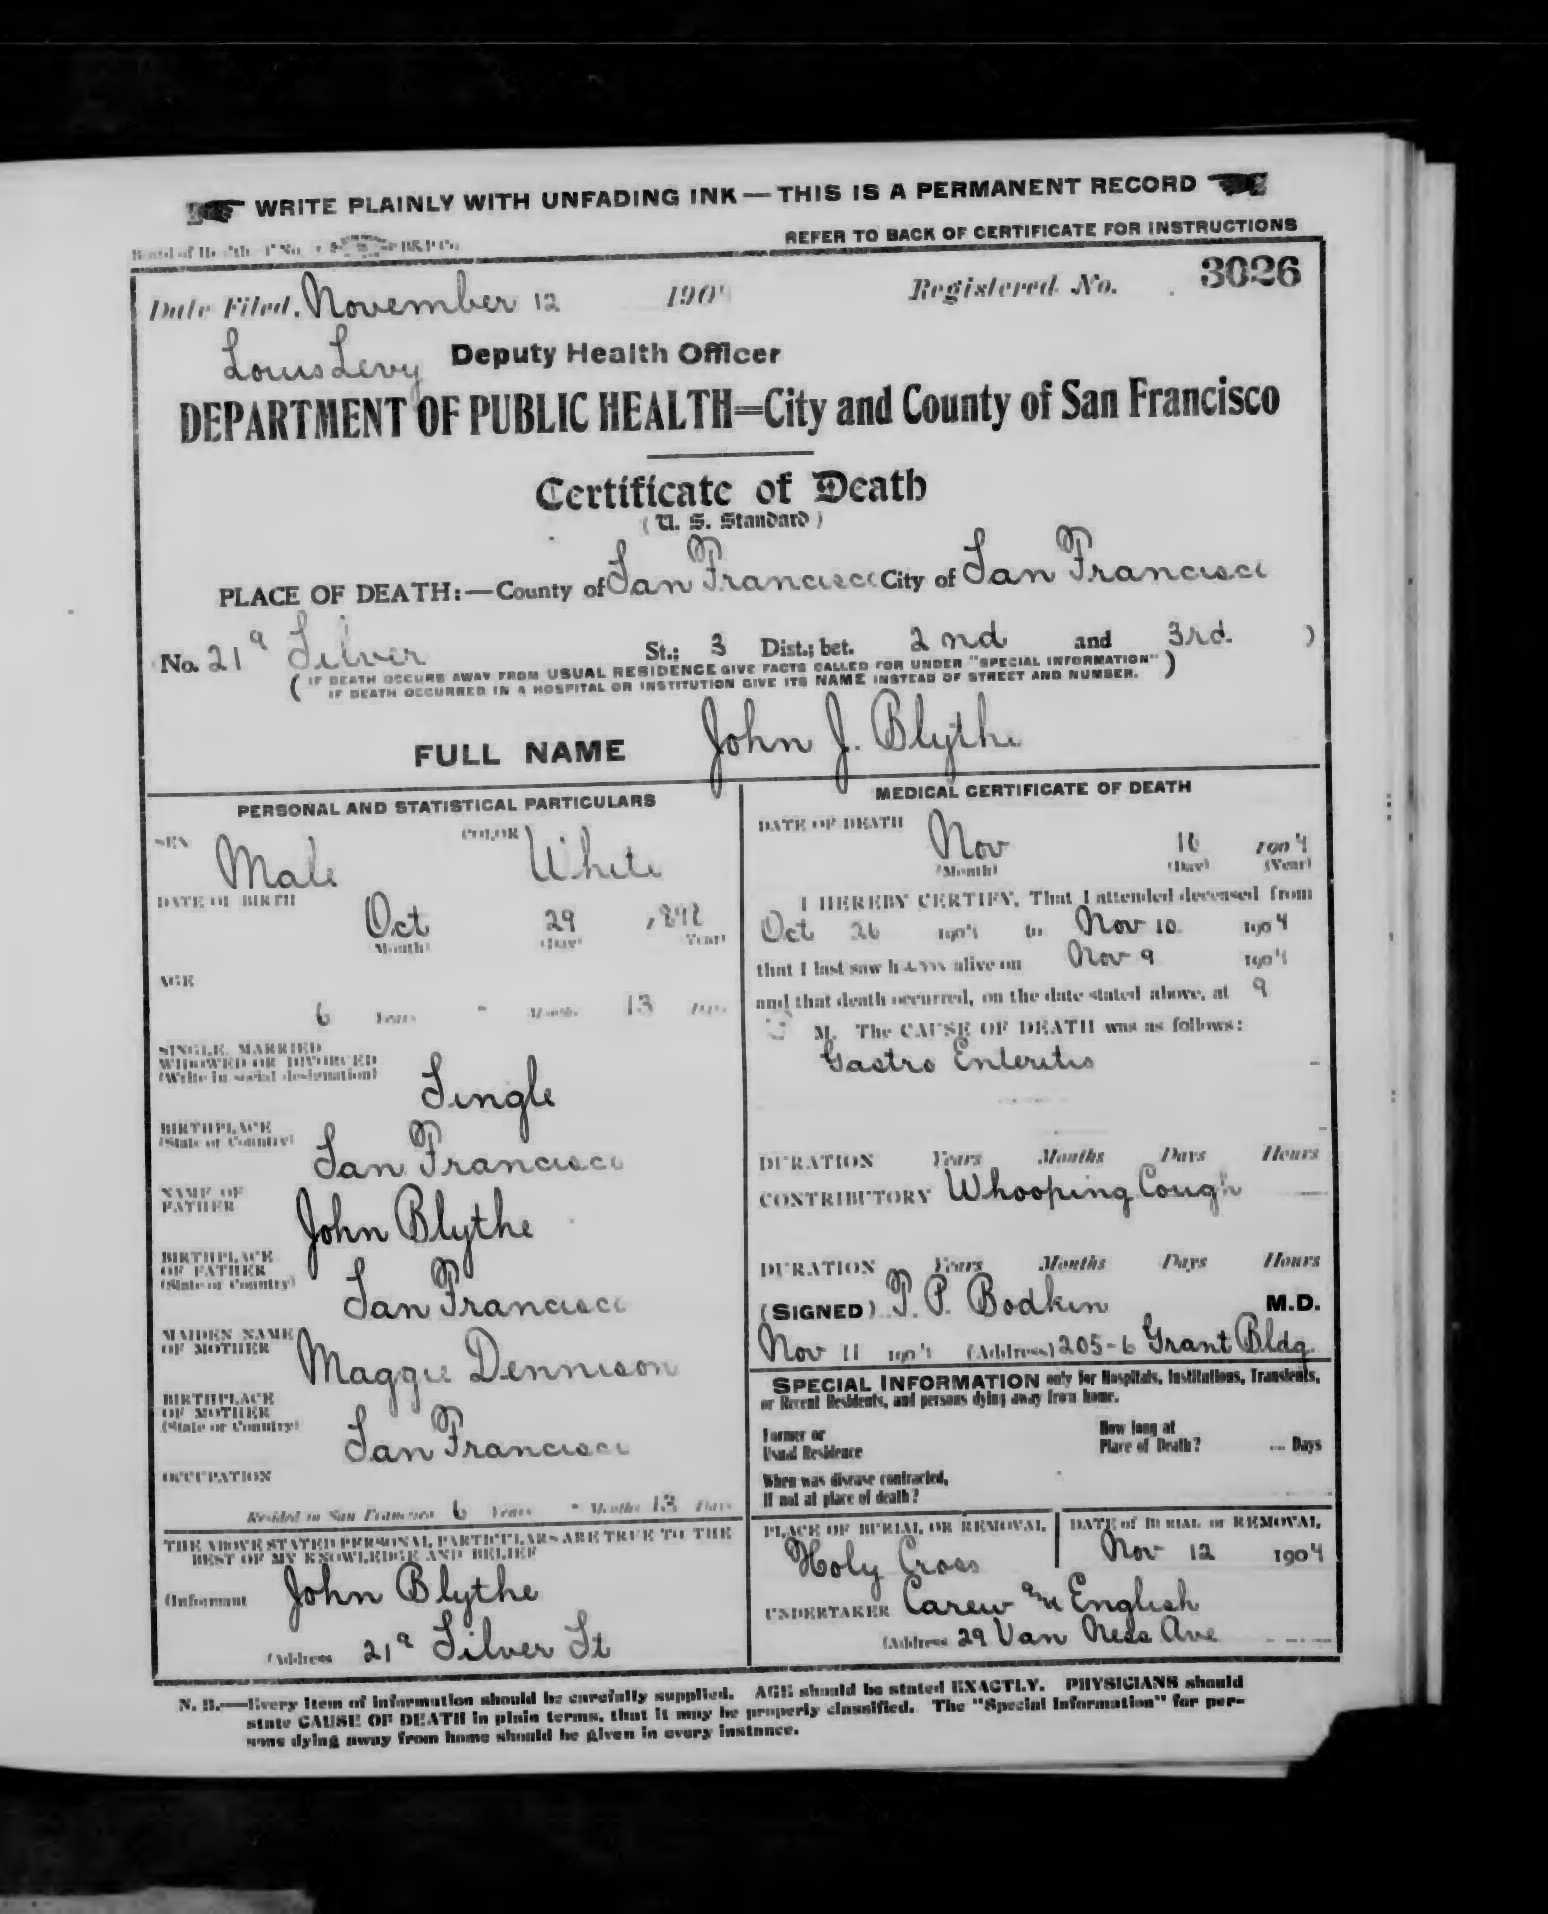 WRITE PLAINLY WITH UNFADING INK — THIS IS A PERMANENT RECORD
REFER TO BACK OF CERTIFICATE FOR INSTRUCTIONS
Date Filed, November 12 1904 Registered No. 3026
Louis Levy Deputy Health Officer
DEPARTMENT OF PUBLIC HEALTH=City and County of San Francisco
Certificate of Death
(U. S. Standard)
PLACE OF DEATH:—County of San Francisco City of San Francisco
No. 21a Silver St.; 3 Dist.; bet. 2nd and 3rd. )
( IF DEATH OCCURS AWAY FROM USUAL RESIDENCE GIVE FACTS CALLED FOR UNDER "SPECIAL INFORMATION" )
IF DEATH OCCURRED IN A HOSPITAL OR INSTITUTION GIVE ITS NAME INSTEAD OF STREET AND NUMBER.
FULL NAME John J. Blythe
PERSONAL AND STATISTICAL PARTICULARS
SEX Male COLOR White
DATE OF BIRTH Oct 29
(Month) (Day) (Year)
AGE
6 Years " Months 13 Days
SINGLE, MARRIED
WIDOWED OR DIVORCED
(Write in social designation) Single
BIRTHPLACE
(State or Country) San Francisco
NAME OF
FATHER John Blythe
BIRTHPLACE
OF FATHER
(State or Country) San Francisco
MAIDEN NAME
OF MOTHER Maggie Dennison
BIRTHPLACE
OF MOTHER
(State or Country) San Francisco
OCCUPATION
Resided in San Francisco 6 Years " Months 13 Days
THE ABOVE STATED PERSONAL PARTICULARS ARE TRUE TO THE
BEST OF MY KNOWLEDGE AND BELIEF
(Informant John Blythe
(Address 21a Silver St
MEDICAL CERTIFICATE OF DEATH
DATE OF DEATH Nov 10 1904
(Month) (Day) (Year)
I HEREBY CERTIFY, That I attended deceased from
Oct 26 1904 to Nov 10 1904
that I last saw him alive on Nov 9 1904
and that death occurred, on the date stated above, at 9
M. The CAUSE OF DEATH was as follows:
Gastro Enteritis
DURATION Years Months Days Hours
CONTRIBUTORY Whooping Cough
DURATION Years Months Days Hours
(SIGNED) T. P. Bodkin M.D.
Nov 11 1904 (Address) 205-6 Grant Bldg.
SPECIAL INFORMATION only for Hospitals, Institutions, Transients,
or Recent Residents, and persons dying away from home.
Former or How long at
Usual Residence Place of Death? .... Days
When was disease contracted,
If not at place of death?
PLACE OF BURIAL OR REMOVAL DATE of BURIAL or REMOVAL
Holy Cross Nov 12 1904
UNDERTAKER Carew and English
(Address 29 Van Ness Ave
N. B.—Every item of information should be carefully supplied. AGE should be stated EXACTLY. PHYSICIANS should
state CAUSE OF DEATH in plain terms, that it may be properly classified. The "Special Information" for per-
sons dying away from home should be given in every instance.